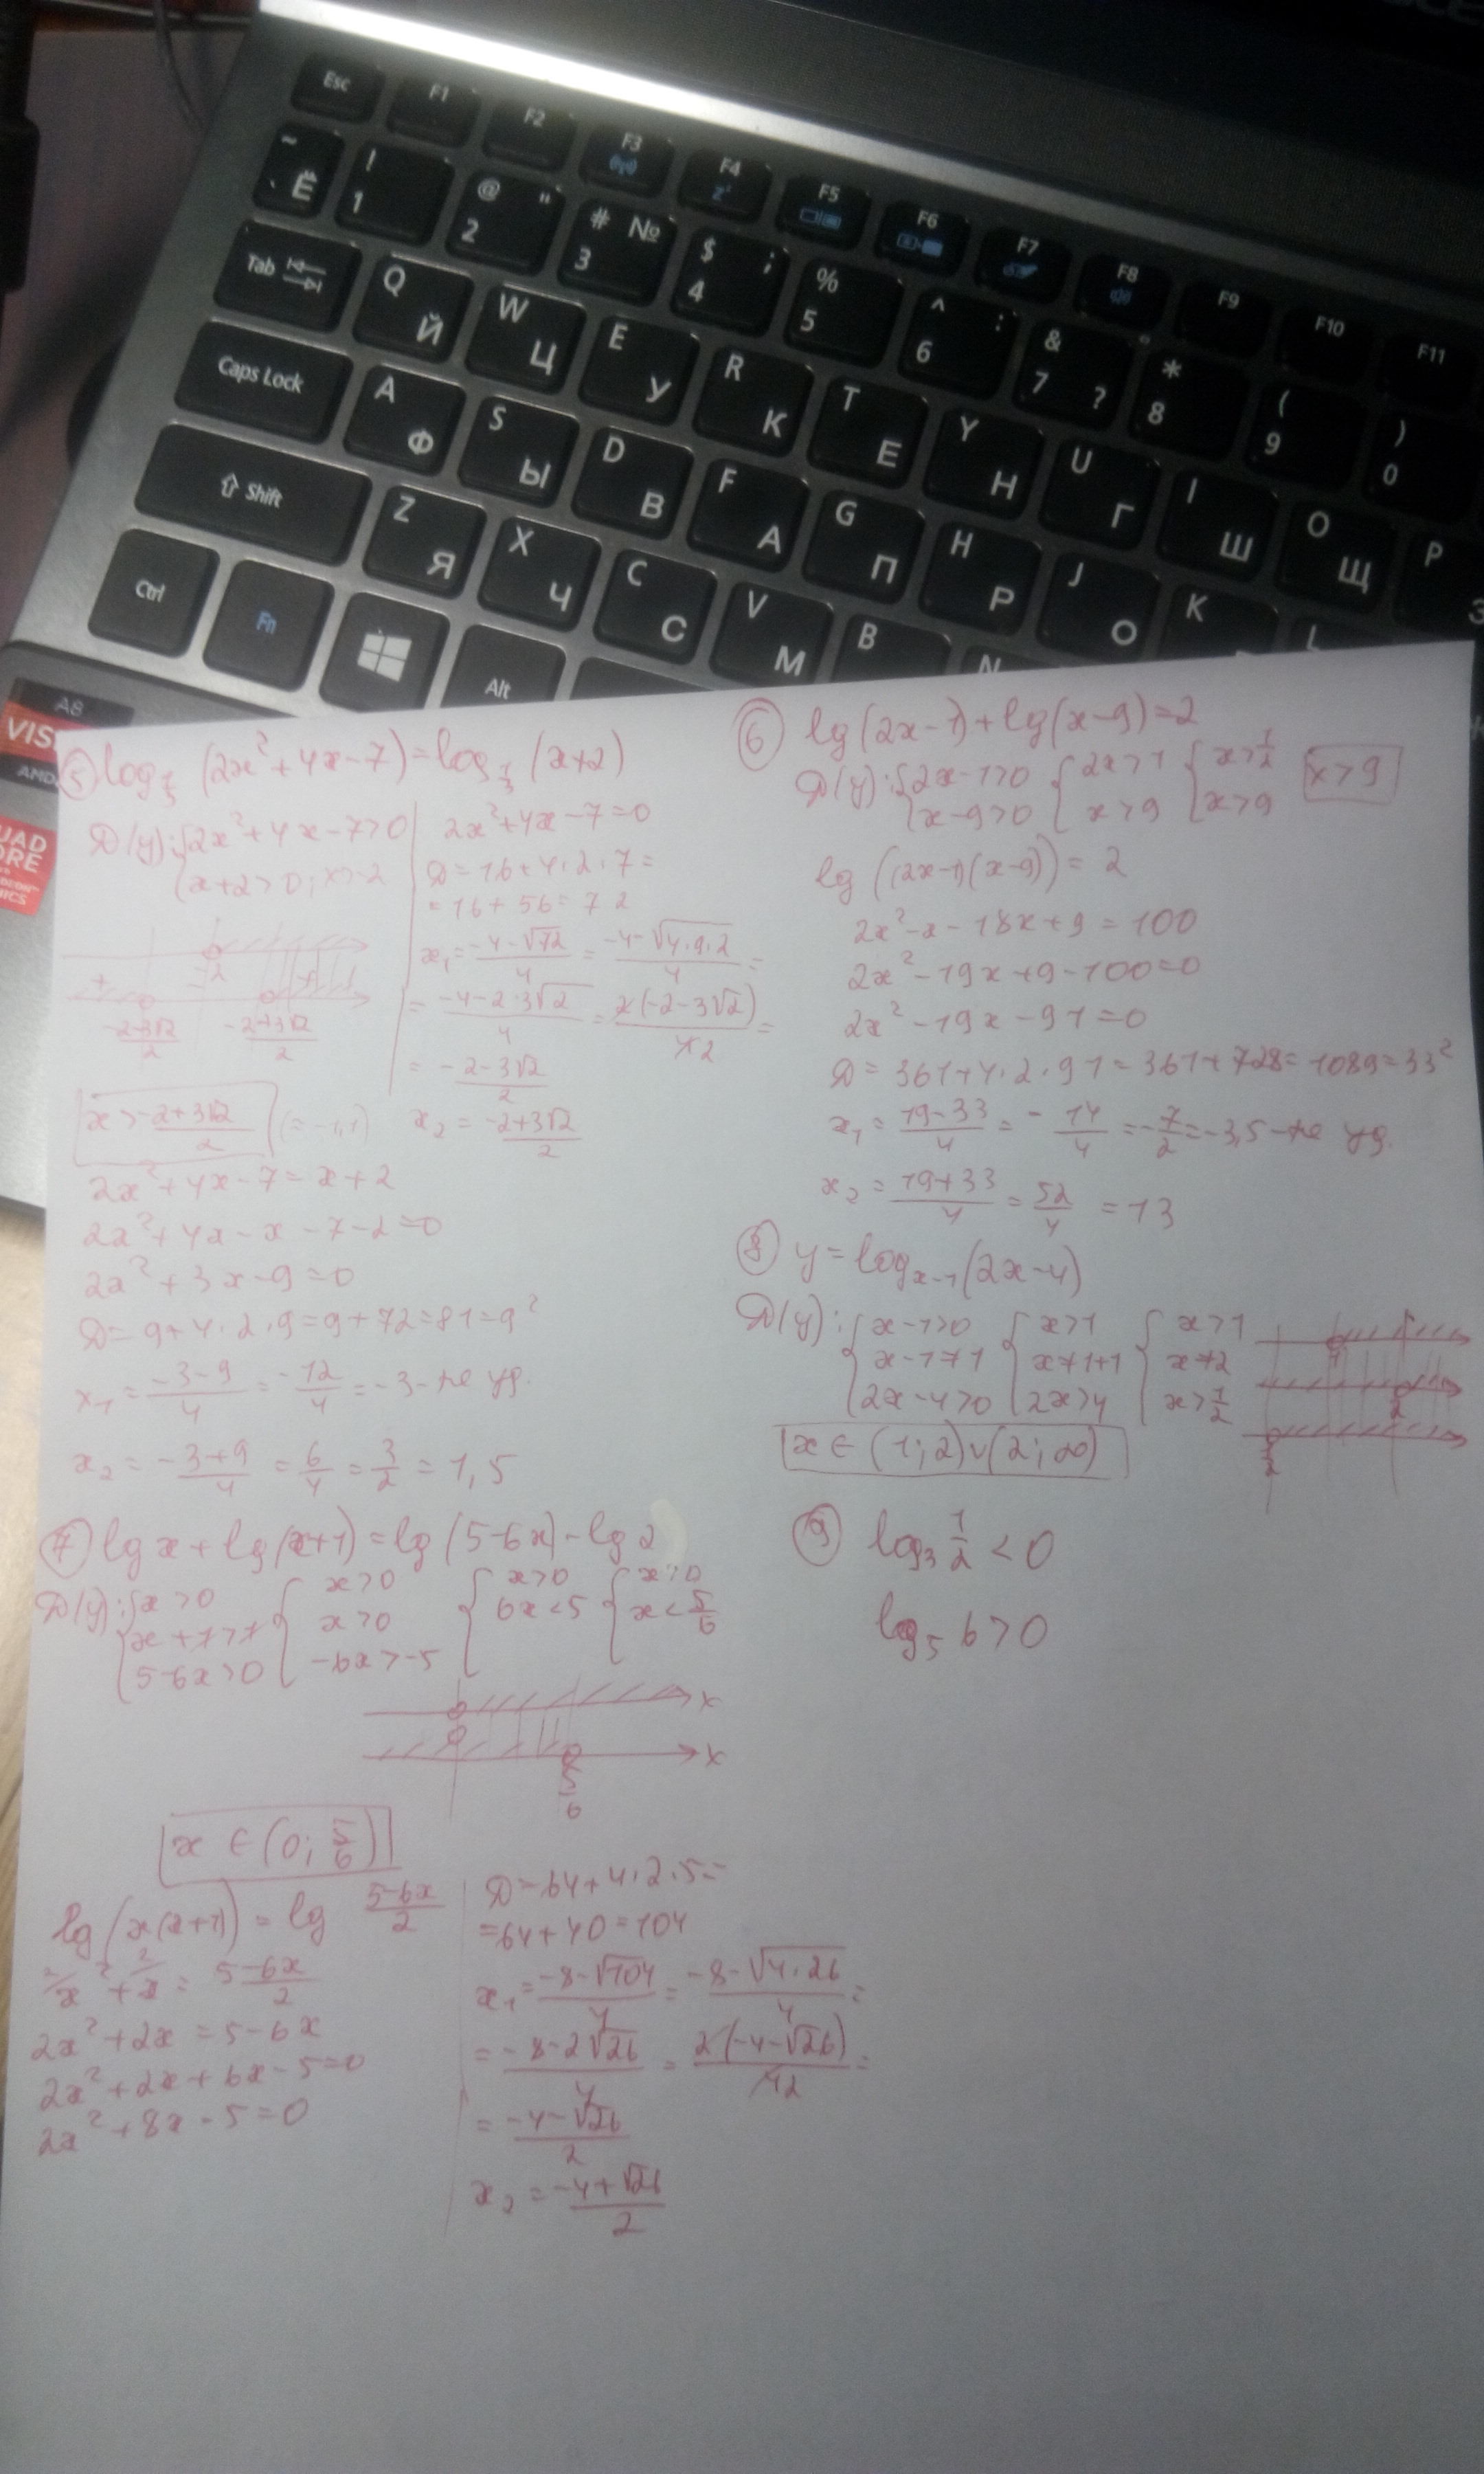 Esc F1 F2 F3 F4 F5 F6 F7 F8 F9 F10 F11
~ ` Ё ! 1 @ " 2 # № 3 $ ; 4 % 5 ^ : 6 & 7 ? * 8 ( 9 ) 0
Tab Q Й W Ц E У R К T Е Y Н U Г I Ш O Щ P З
Caps Lock A Ф S Ы D В F А G П H Р J О K L
Shift Z Я X Ч C С V М B N
Ctrl Fn Alt
A8
VIS
AMD
UAD
ORE
DEON™
HICS
⑤ log_1/3 (2x²+4x-7)=log_1/3 (x+2)
D(y): {2x²+4x-7>0
{x+2>0; x>-2
2x²+4x-7=0
D=16+4·2·7=
=16+56=72
x₁=(-4-√72)/4=(-4-√(4·9·2))/4=
=(-4-2·3√2)/4=2(-2-3√2)/42=
=(-2-3√2)/2
x₂=(-2+3√2)/2
-2
+ +
(-2-3√2)/2 (-2+3√2)/2
x>(-2+3√2)/2 (=-1,1)
2x²+4x-7=x+2
2x²+4x-x-7-2=0
2x²+3x-9=0
D=9+4·2·9=9+72=81=9²
x₁=(-3-9)/4=-12/4=-3-не уд.
x₂=(-3+9)/4=6/4=3/2=1,5
⑥ lg(2x-1)+lg(x-9)=2
D(y): {2x-1>0 {2x>1 {x>1/2 x>9
{x-9>0 {x>9 {x>9
lg((2x-1)(x-9))=2
2x²-x-18x+9=100
2x²-19x+9-100=0
2x²-19x-91=0
D=361+4·2·91=361+728=1089=33²
x₁=(19-33)/4=-14/4=-7/2=-3,5-не уд.
x₂=(19+33)/4=52/4=13
⑧ y=log_x-1(2x-4)
D(y): {x-1>0 {x>1 {x>1
{x-1≠1 {x≠1+1 {x≠2
{2x-4>0 {2x>4 {x>1/2
1
2
1/2
x∈(1;2)∪(2;∞)
⑦ lg x+lg(x+1)=lg(5-6x)-lg2
D(y): {x>0 {x>0 {x>0 {x>0
{x+1>1 {x>0 {6x<5 {x<5/6
{5-6x>0 {-6x>-5
x
x
5/6
x∈(0;5/6)
lg(x(x+1))=lg (5-6x)/2
²/x²+²/x=(5-6x)/2
2x²+2x=5-6x
2x²+2x+6x-5=0
2x²+8x-5=0
D=64+4·2·5=
=64+40=104
x₁=(-8-√104)/4=(-8-√(4·26))/4=
=(-8-2√26)/4=2(-4-√26)/42=
=(-4-√26)/2
x₂=(-4+√26)/2
⑨ log₃ 1/2<0
log₅ 6>0